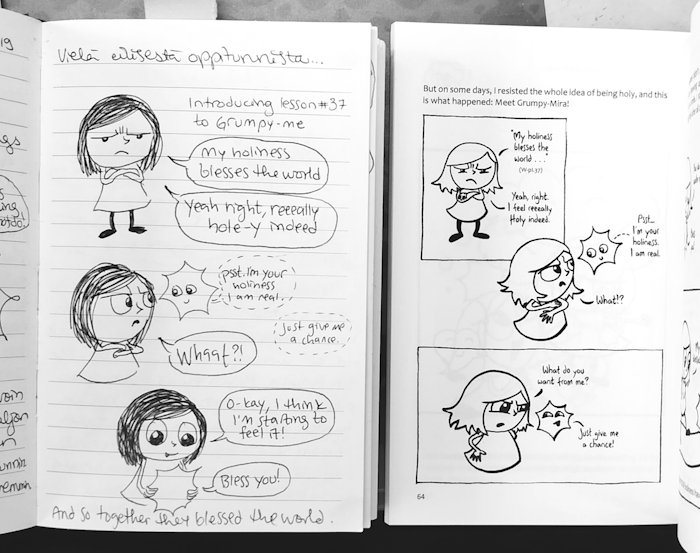 Vielä eilisestä oppitunnista...
Introducing lesson #37
to Grumpy-me
My holiness
blesses the world
Yeah right, reeeally
hole-y indeed
psst. I'm your
holiness
I am real.
Just give me
a chance.
Whaat?!
O-kay, I think
I'm starting to
feel it!
Bless you!
And so together they blessed the world.
But on some days, I resisted the whole idea of being holy, and this
is what happened: Meet Grumpy-Mira!
"My holiness
blesses the
world..."
(W-pI.37)
Yeah, right.
I feel reeeally
Holy indeed.
Psst...
I'm your
holiness.
I am real.
What!?
What do you
want from me?
Just give me
a chance!
64